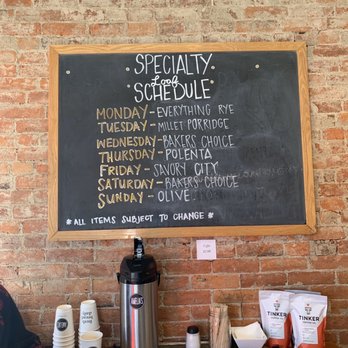 SPECIALTY
Loaf
SCHEDULE
MONDAY - EVERYTHING RYE
TUESDAY - MILLET PORRIDGE
WEDNESDAY - BAKERS CHOICE
THURSDAY - POLENTA
FRIDAY - SAVORY CITY
SATURDAY - BAKERS CHOICE
SUNDAY - OLIVE
# ALL ITEMS SUBJECT TO CHANGE #
TINKER
TINKER